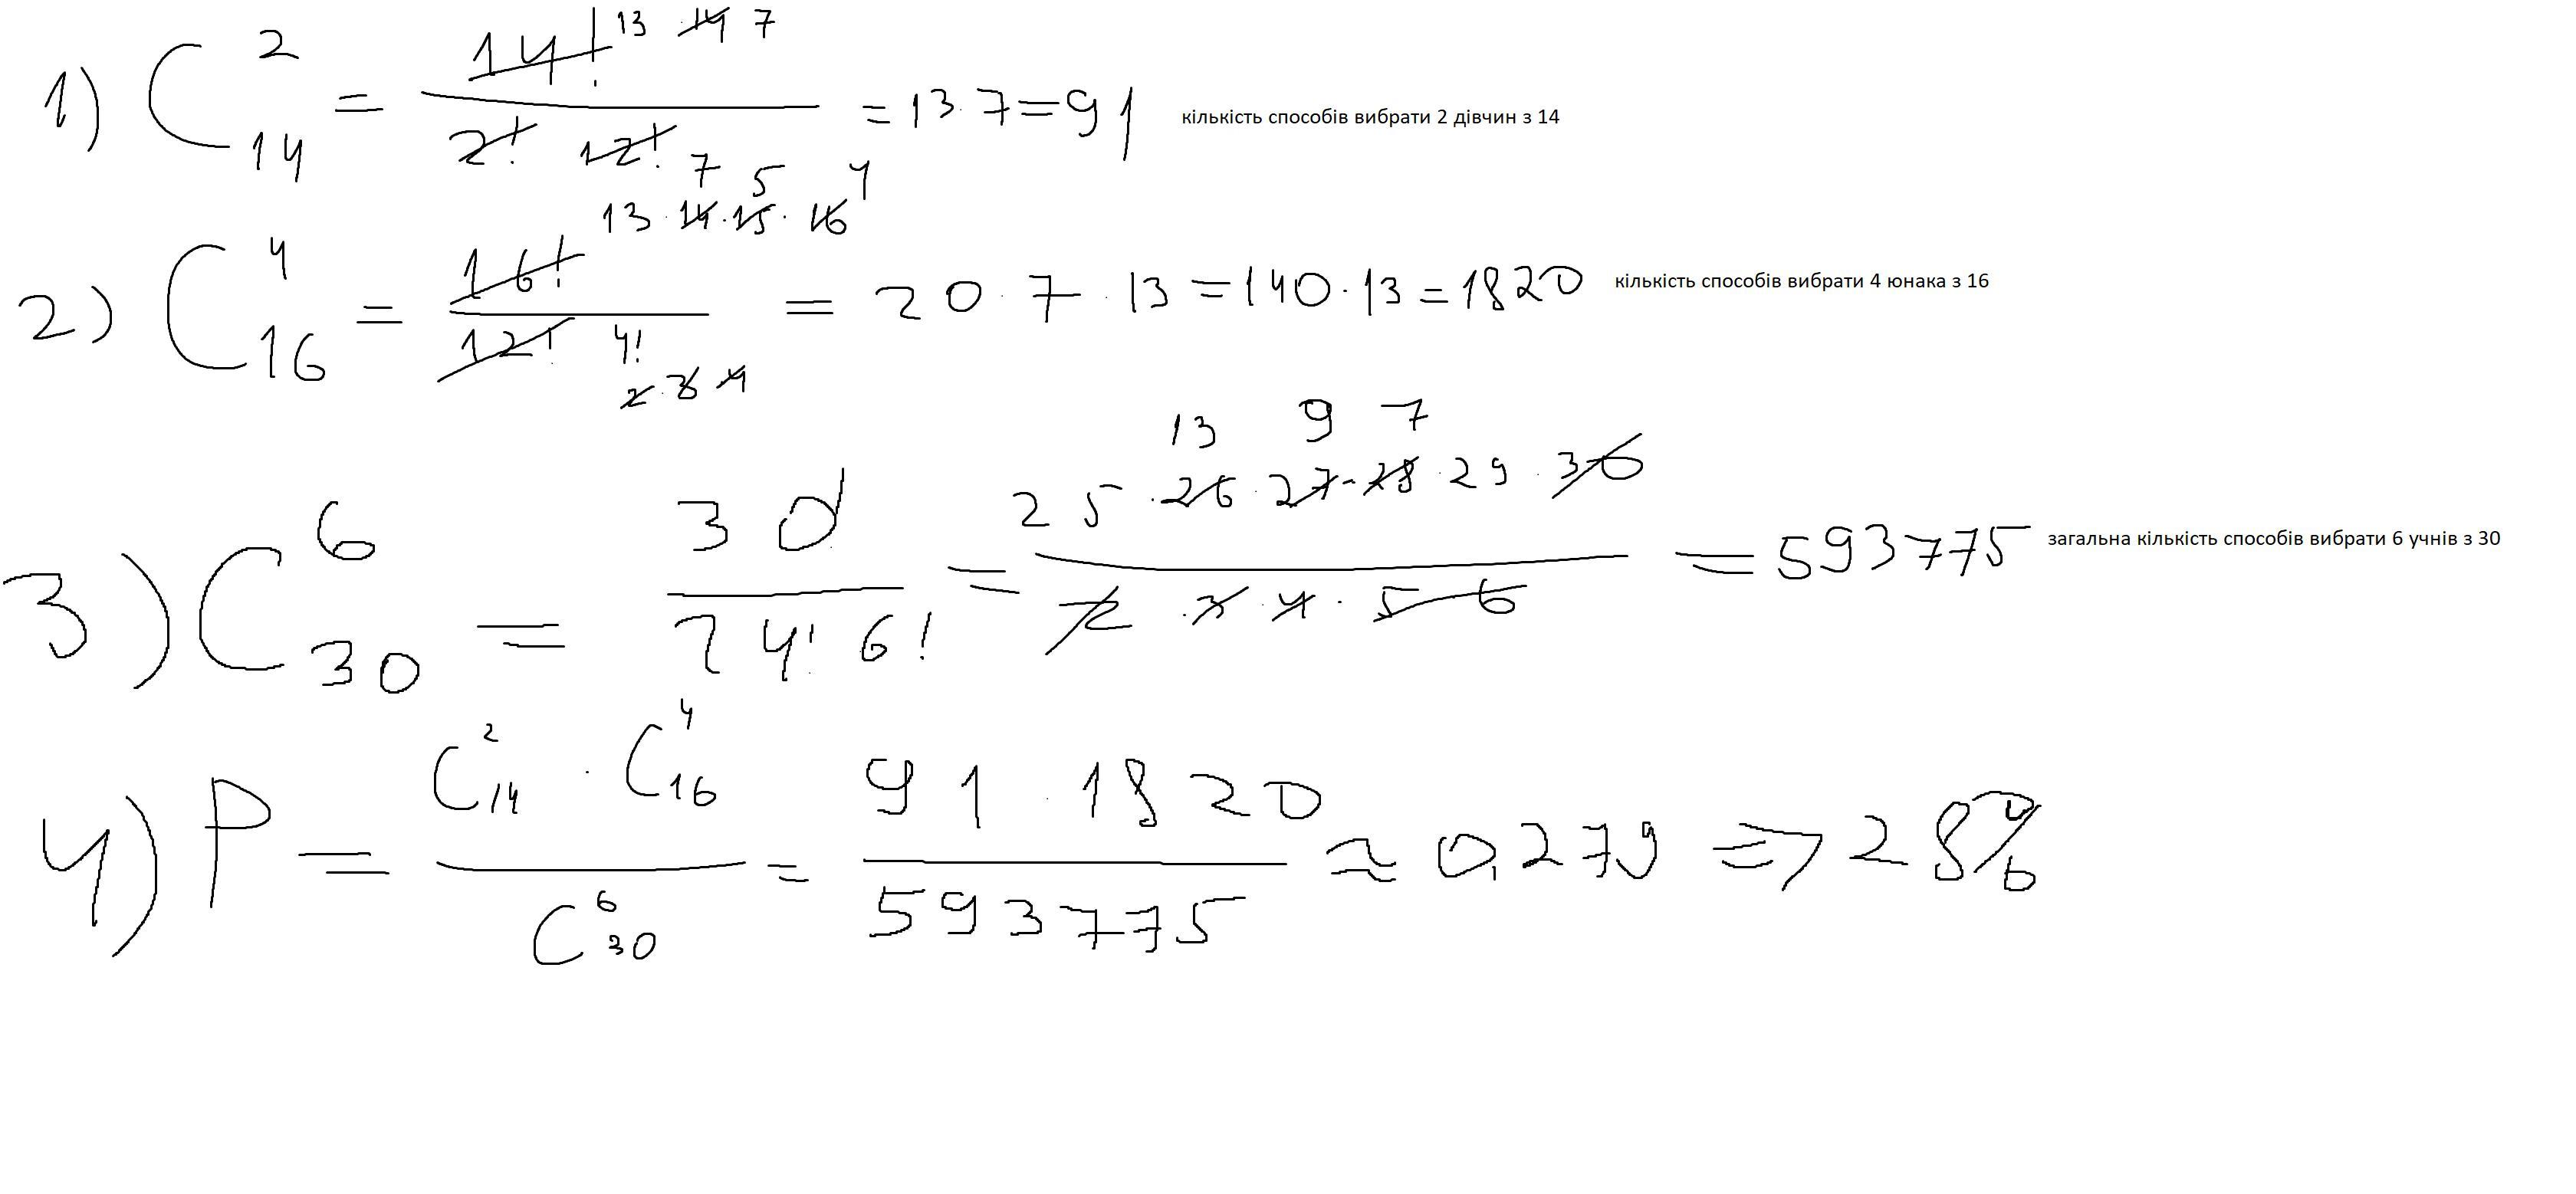 1) C²₁₄ = 14! 13 · 14 7 / 2! 12! = 13 · 7 = 91 кількість способів вибрати 2 дівчин з 14
2) C⁴₁₆ = 16! 13 · 14 7 · 15 5 · 16 4 / 12! 4! 2 · 3 · 4 = 20 · 7 · 13 = 140 · 13 = 1820 кількість способів вибрати 4 юнака з 16
3) C⁶₃₀ = 30! / 24! 6! = 25 · 26 13 · 27 9 · 28 7 · 29 · 30 / 2 · 3 · 4 · 5 6 = 593775 загальна кількість способів вибрати 6 учнів з 30
4) P = C²₁₄ · C⁴₁₆ / C⁶₃₀ = 91 · 1820 / 593775 ≈ 0,279 => 28%